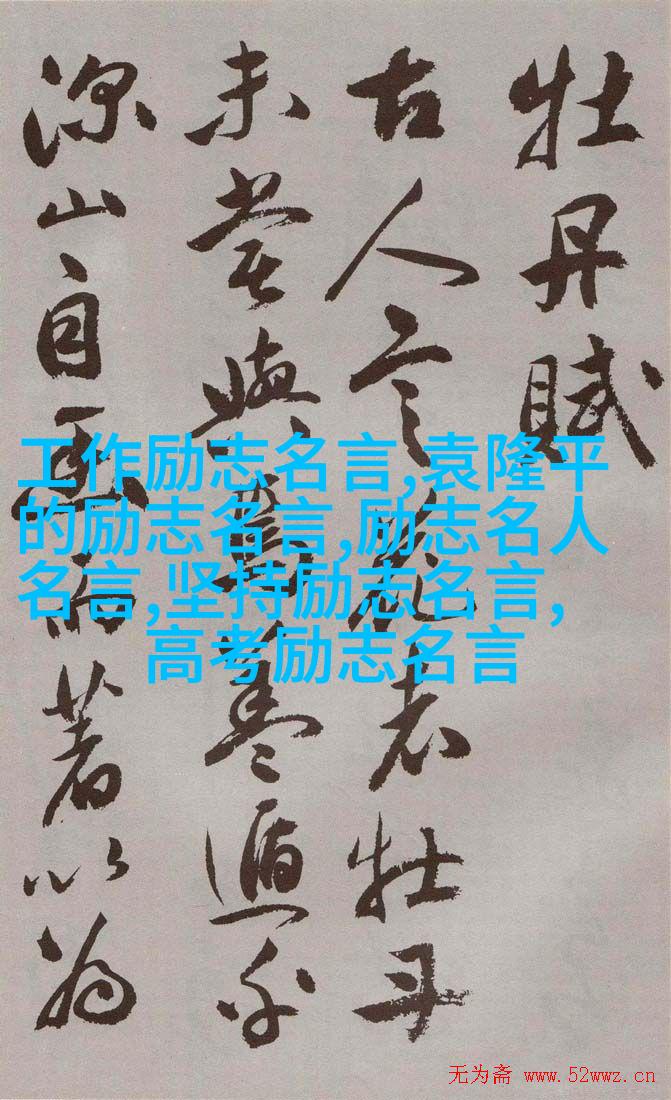 牡丹賦
古人言花者牡丹
未嘗與焉蓋遁乎
深山自幽而著以為
工作励志名言,袁隆平
的励志名言,励志名人
名言,坚持励志名言,
高考励志名言
无为斋 www.52wwz.cn